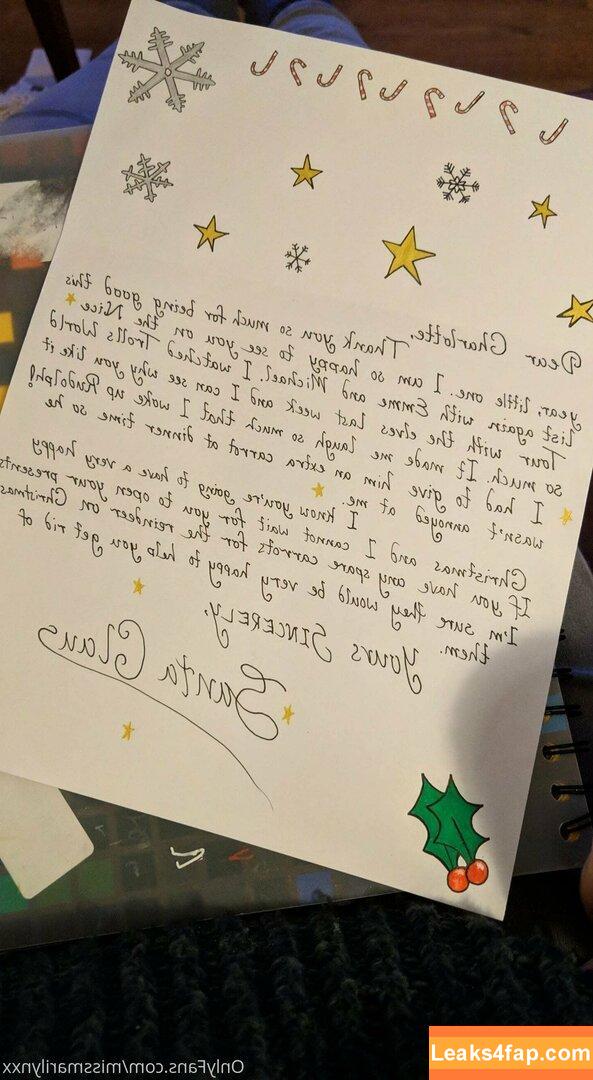 Dear Charlotte,
Thank you so much for being good this
year, little one. I am so happy to see you on the Nice
list again with Emme and Michael. I watched Trolls World
Tour with the elves last week and I can see why you like it
so much. It made me laugh so much that I woke up Rudolph!
I had to give him an extra carrot at dinner time so he
wasn't annoyed at me.
I know you're going to have a very happy
Christmas and I cannot wait for you to open your presents.
If you have any spare carrots for the reindeer on Christmas
I'm sure they would be very happy to help you get rid of
them.
Yours Sincerely,
Santa Claus
OnlyFans.com/missmarilynxx
Leaks4fap.com